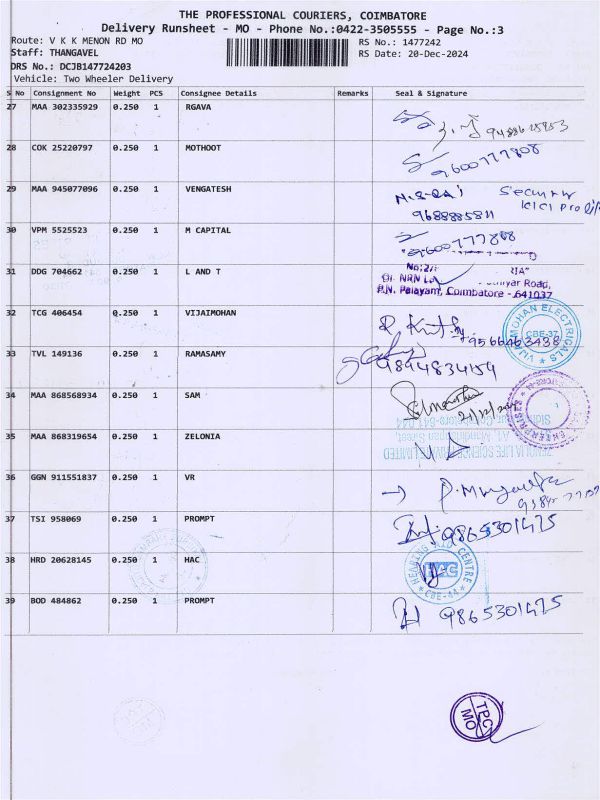 THE PROFESSIONAL COURIERS, COIMBATORE
Delivery Runsheet - MO - Phone No.:0422-3505555 - Page No.:3
Route: V K K MENON RD MO
RS No.: 1477242
Staff: THANGAVEL
RS Date: 20-Dec-2024
DRS No.: DCJB147724203
Vehicle: Two Wheeler Delivery
S No Consignment No Weight PCS Consignee Details Remarks Seal & Signature
27 MAA 302335929 0.250 1 RGAVA
28 COK 25220797 0.250 1 MOTHOOT
9600777808
29 MAA 945077096 0.250 1 VENGATESH
Security
9688885811
30 VPM 5525523 0.250 1 M CAPITAL
9600777808
31 DDG 704662 0.250 1 L AND T
P.N. Palayam, Coimbatore - 641037
32 TCG 406454 0.250 1 VIJAIMOHAN
9566463438
VIJAI MOHAN ELECTRICALS
CBE-37
33 TVL 149136 0.250 1 RAMASAMY
9894834159
34 MAA 868568934 0.250 1 SAM
21/12/2024
ENTERPRISES
35 MAA 868319654 0.250 1 ZELONIA
ZENOLIA LIFE SCIENCE PRIVATE LIMITED
36 GGN 911551837 0.250 1 VR
37 TSI 958069 0.250 1 PROMPT
9865301475
38 HRD 20628145 0.250 1 HAC
HEARING AID CENTRE
HAC
CBE-44
39 BOD 484862 0.250 1 PROMPT
9865301475
TPC
MO